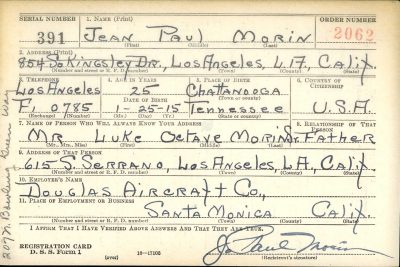 SERIAL NUMBER 1. NAME (Print) ORDER NUMBER
391 JEAN PAUL MORIN 2962
(First) (Middle) (Last)
2. ADDRESS (Print)
854 So KINGSLEY DR., LOS ANGELES, L.A., CALIF.
(Number and street or R. F. D. number) (Town) (County) (State)
3. TELEPHONE 4. AGE IN YEARS 5. PLACE OF BIRTH 6. COUNTRY OF CITIZENSHIP
LOS ANGELES 25 CHATTANOOGA
DATE OF BIRTH (Town or county)
FI 0785 1-25-15 TENNESSEE U.S.A.
(Exchange) (Number) (Mo.) (Day) (Yr.) (State or country)
7. NAME OF PERSON WHO WILL ALWAYS KNOW YOUR ADDRESS 8. RELATIONSHIP OF THAT PERSON
MR. LUKE OCTAVE MORIN SR. FATHER
(Mr., Mrs., Miss) (First) (Middle) (Last)
9. ADDRESS OF THAT PERSON
615 S. SERRANO, LOS ANGELES, L.A., CALIF.
(Number and street or R. F. D. number) (Town) (County) (State)
10. EMPLOYER'S NAME
DOUGLAS AIRCRAFT CO.,
11. PLACE OF EMPLOYMENT OR BUSINESS
SANTA MONICA CALIF.
(Number and street or R. F. D. number) (Town) (County) (State)
I AFFIRM THAT I HAVE VERIFIED ABOVE ANSWERS AND THAT THEY ARE TRUE.
REGISTRATION CARD
D. S. S. FORM 1 (over) 16-17105 J. Paul Morin
(Registrant's signature)
207 N. Bowling Green Way